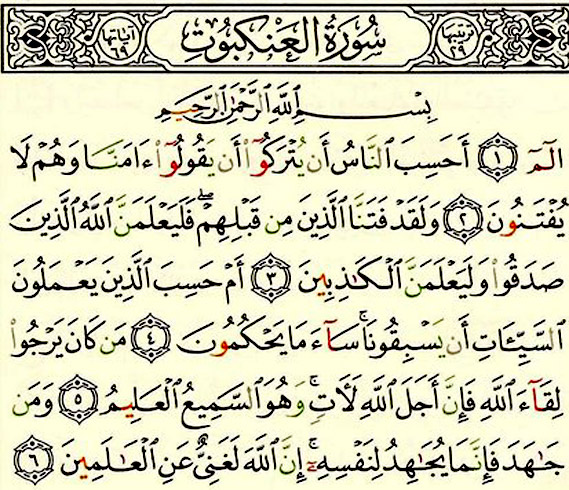 ترتيبها ٢٩ سُورَةُ العَنكَبُوتِ آياتها ٦٩
بِسْمِ ٱللَّهِ ٱلرَّحْمَٰنِ ٱلرَّحِيمِ
الٓمٓ ١ أَحَسِبَ ٱلنَّاسُ أَن يُتْرَكُوٓا۟ أَن يَقُولُوٓا۟ ءَامَنَّا وَهُمْ لَا
يُفْتَنُونَ ٢ وَلَقَدْ فَتَنَّا ٱلَّذِينَ مِن قَبْلِهِمْ ۖ فَلَيَعْلَمَنَّ ٱللَّهُ ٱلَّذِينَ
صَدَقُوا۟ وَلَيَعْلَمَنَّ ٱلْكَٰذِبِينَ ٣ أَمْ حَسِبَ ٱلَّذِينَ يَعْمَلُونَ
ٱلسَّيِّـَٔاتِ أَن يَسْبِقُونَا ۚ سَآءَ مَا يَحْكُمُونَ ٤ مَن كَانَ يَرْجُوا۟
لِقَآءَ ٱللَّهِ فَإِنَّ أَجَلَ ٱللَّهِ لَـَٔاتٍ ۚ وَهُوَ ٱلسَّمِيعُ ٱلْعَلِيمُ ٥ وَمَن
جَٰهَدَ فَإِنَّمَا يُجَٰهِدُ لِنَفْسِهِۦٓ ۚ إِنَّ ٱللَّهَ لَغَنِىٌّ عَنِ ٱلْعَٰلَمِينَ ٦